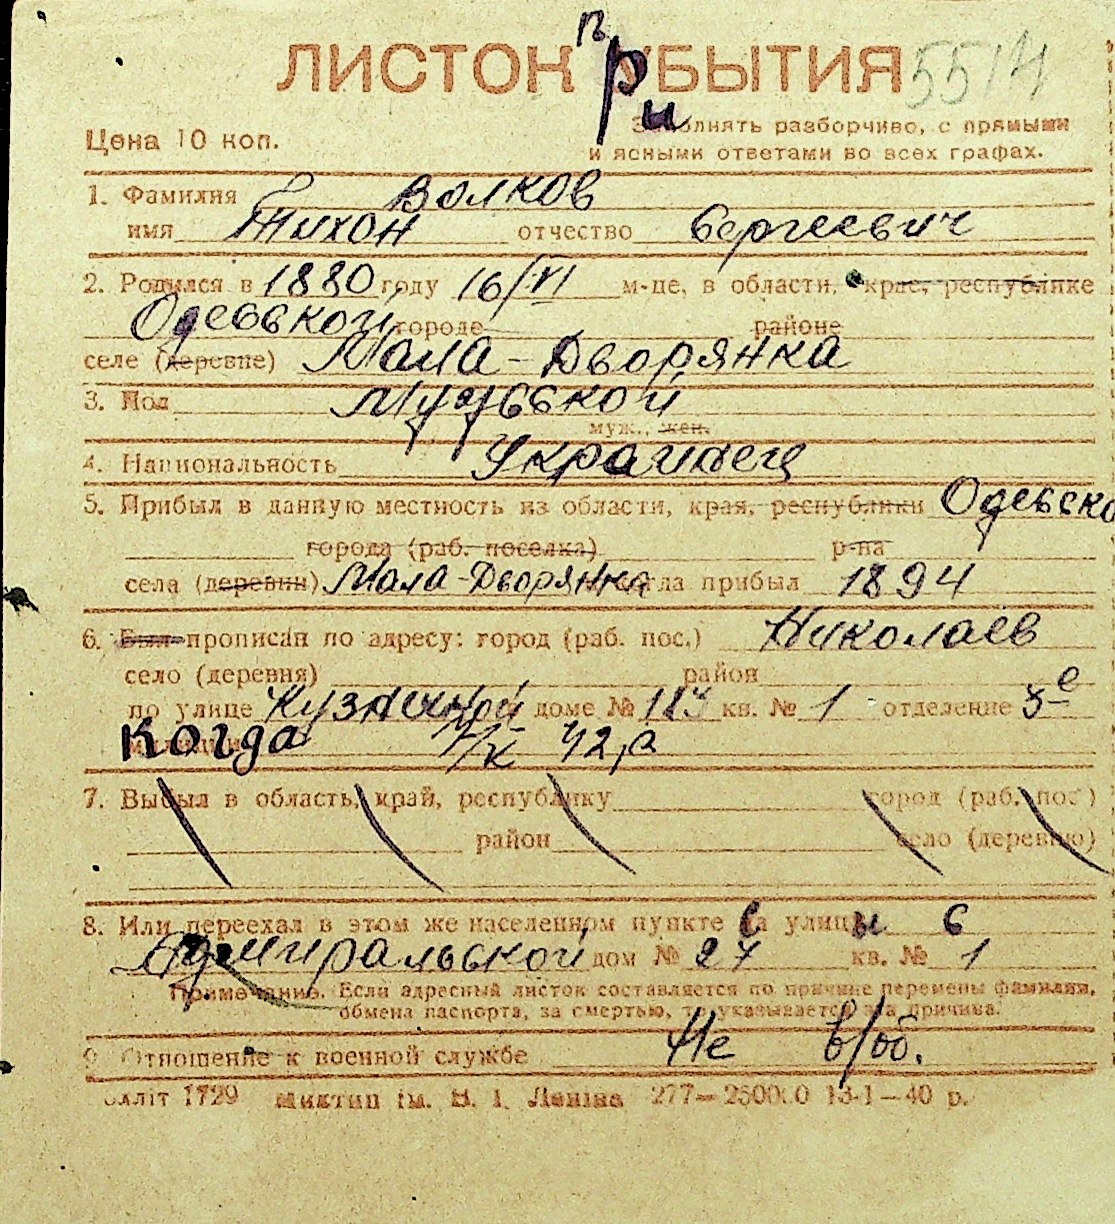 ЛИСТОК при УБЫТИЯ 5514
Цена 10 коп.
Заполнять разборчиво, с прямыми
и ясными ответами во всех графах.
1. Фамилия Волков
имя Тихон отчество Сергеевич
2. Родился в 1880 году 16/VI м-це, в области, крае, республике
Одесской городе районе
селе (деревне) Мала-Дворянка
3. Пол Мужской
муж., жен.
4. Национальность Украинец
5. Прибыл в данную местность из области, края, республики Одесско
города (раб. поселка) р-на
села (деревни) Мала-Дворянка когда прибыл 1894
6. Был прописан по адресу: город (раб. пос.) Николаев
село (деревня) район
по улице Кузнечной доме № 113 кв. № 1 отделение 3е
милиции когда 42 г
7. Выбыл в область, край, республику город (раб. пос.)
район село (деревню)
8. Или переехал в этом же населенном пункте на улицы с
Адмиральской дом № 27 кв. № 1
Примечание. Если адресный листок составляется по причине перемены фамилии,
обмена паспорта, за смертью, то указывается эта причина.
9. Отношение к военной службе Не в/об.
Облліт 1729 Миктип ім. В. І. Леніна 277—250000 13-1—40 р.